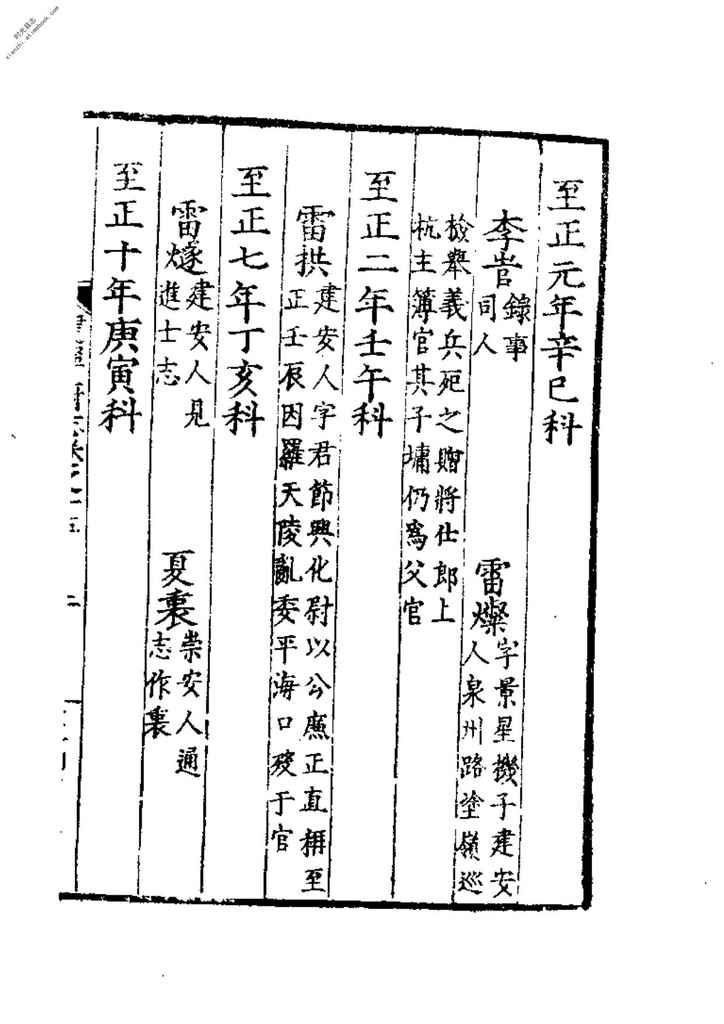 至正元年辛巳科
李岧 錄事司人
雷燦 字景星機子建安人泉州路塗嶺巡
檢舉義兵死之贈將仕郎上杭主簿官其子墉仍爲父官
至正二年壬午科
雷拱 建安人字君節興化尉以公廉正直稱至正壬辰因羅天陵亂委平海口歿于官
至正七年丁亥科
雷燧 建安人見進士志
夏裏 崇安人通志作裏
至正十年庚寅科
时光日志
xianzhi.atimebook.com